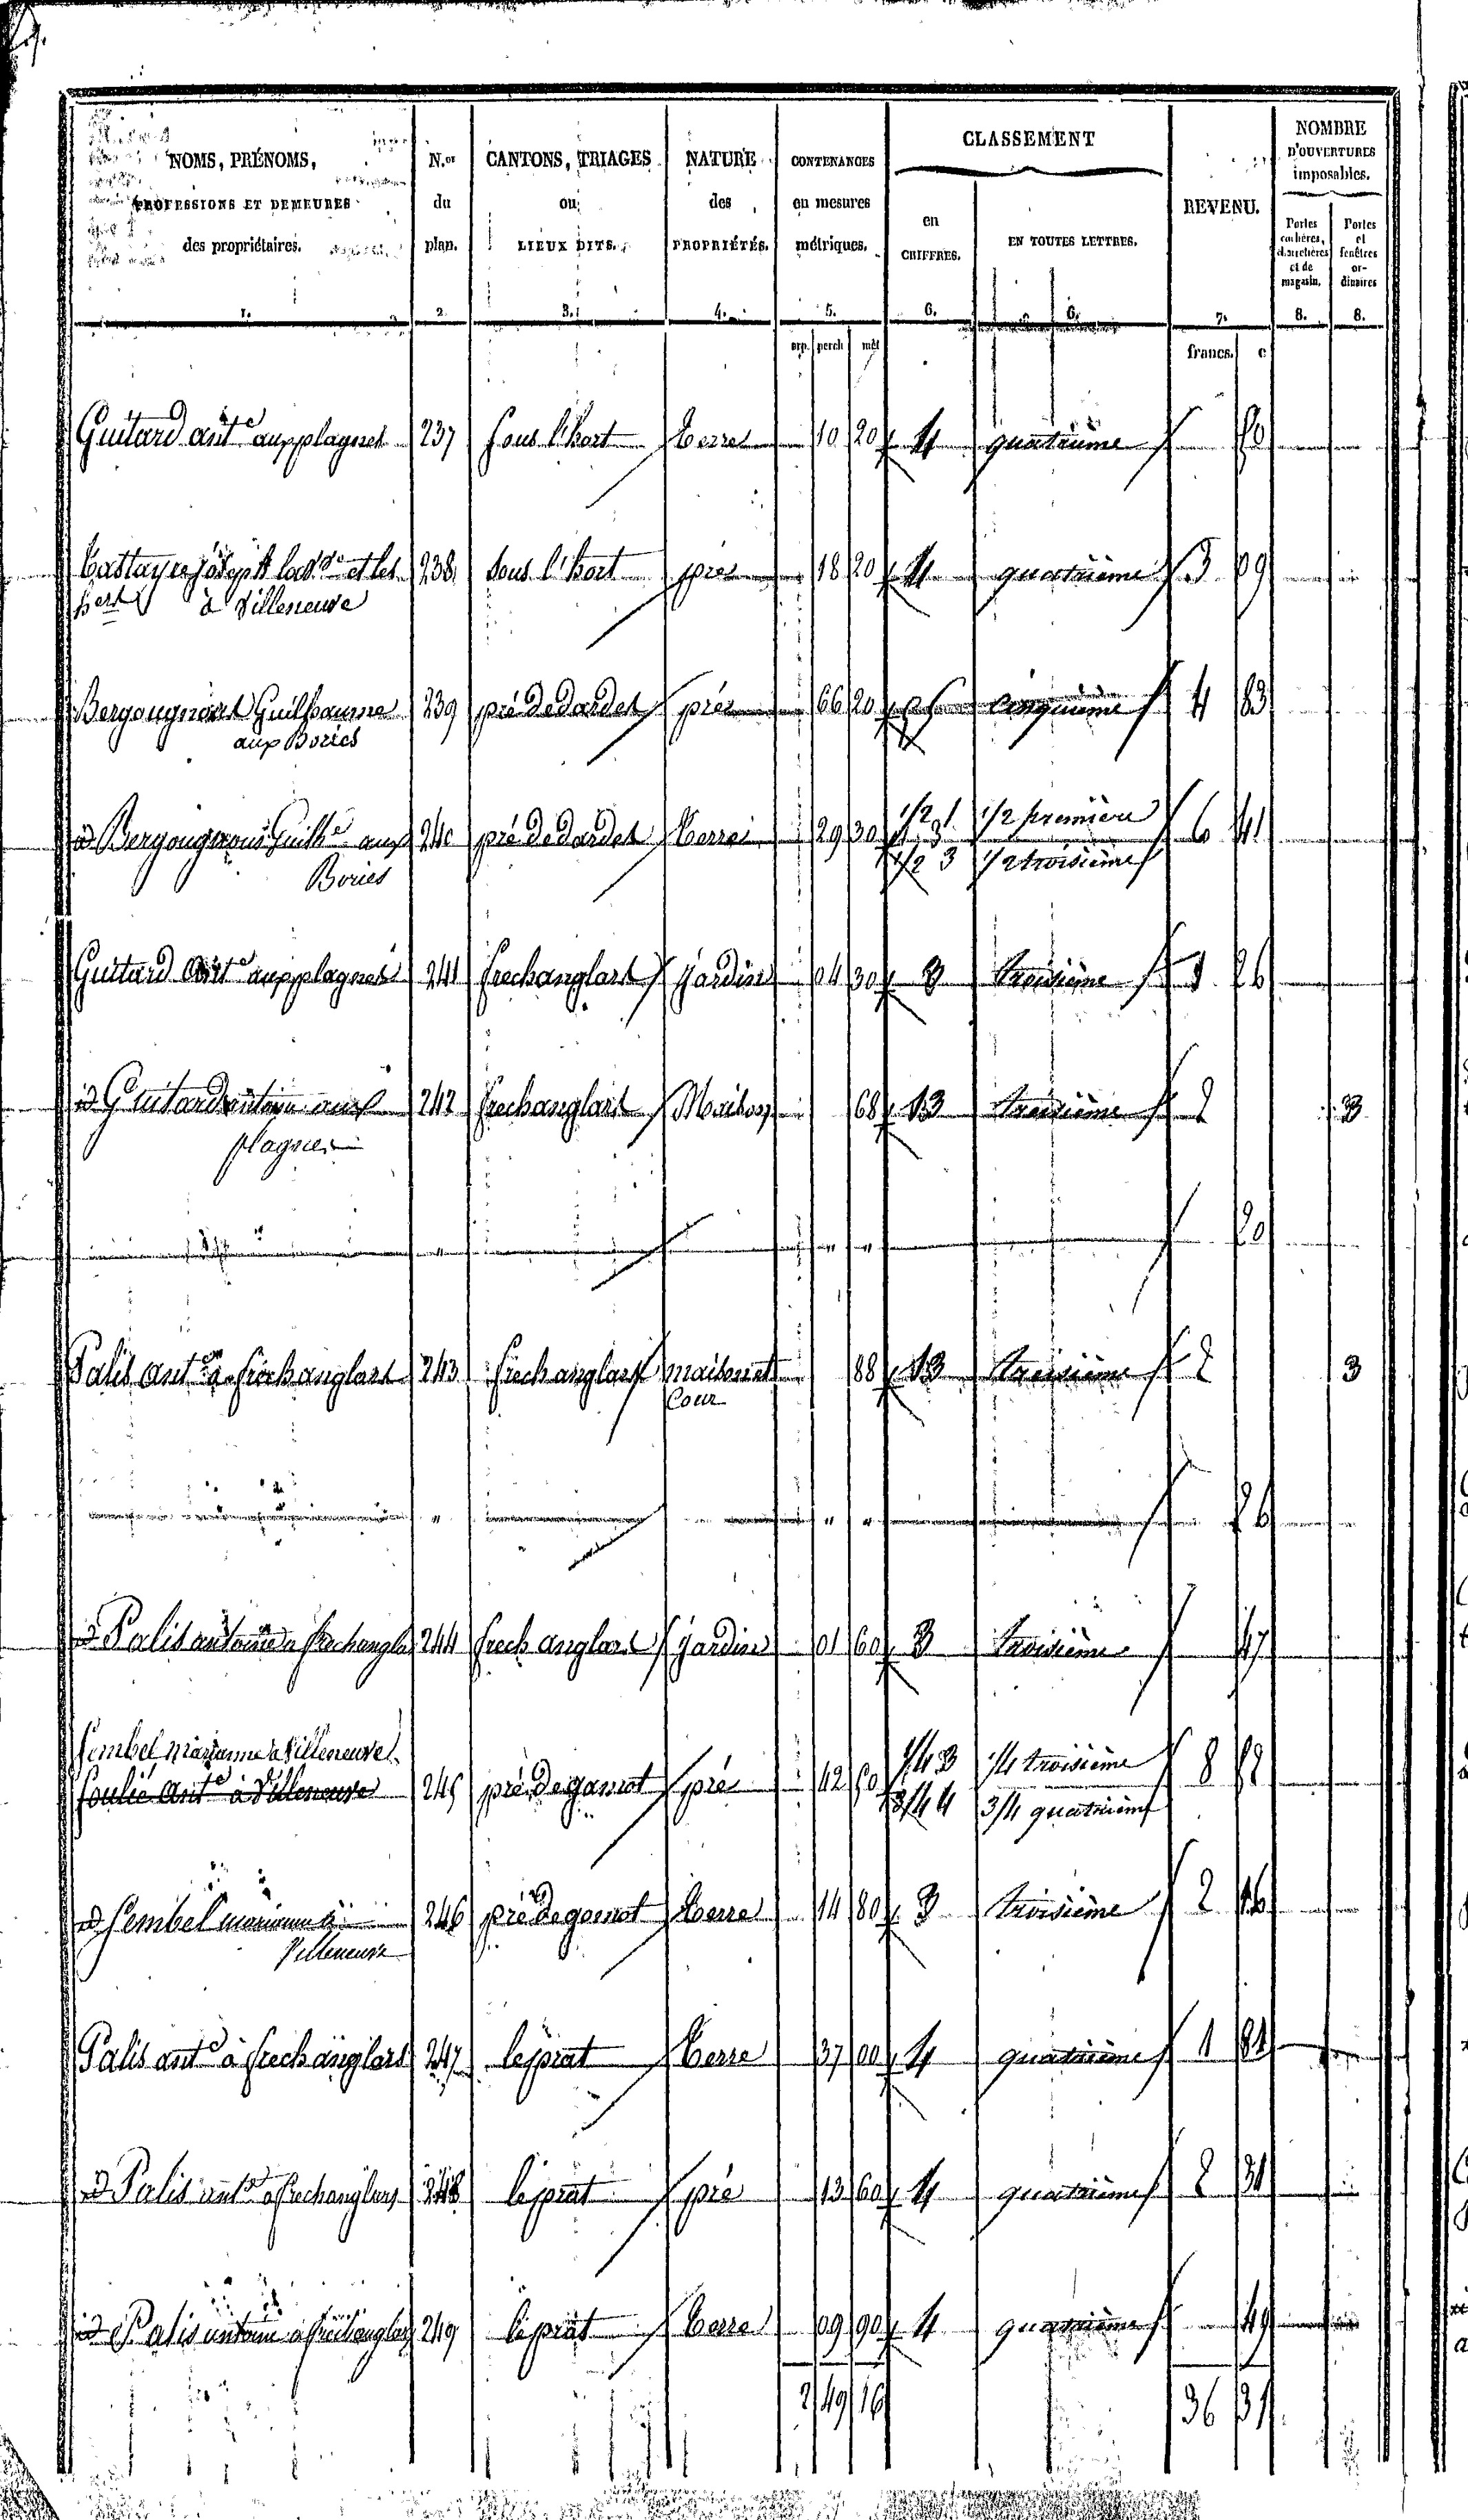 NOMS, PRÉNOMS,
PROFESSIONS ET DEMEURES
des propriétaires.
1.
N.os
du
plan.
2.
CANTONS, TRIAGES
ou
LIEUX DITS.
3.
NATURE
des
PROPRIÉTÉS.
4.
CONTENANCES
en mesures
métriques.
5.
arp. perch mèt
CLASSEMENT
en
CHIFFRES.
6.
EN TOUTES LETTRES.
6.
REVENU.
7.
francs. c
NOMBRE
D'OUVERTURES
imposables.
Portes
cochères,
charretières
et de
magasin.
8.
Portes
et
fenêtres
or-
dinaires
8.
Guitard ant.e aux plagnes 237 Sous l'hort terre 10 20 4 quatrième
joseph et les 238 Sous l'hort pré 18 20 4 quatrième 3 09
à Villeneuve
Bergougnoux Guillaume 239 pré de dardet pré 66 20 5 cinquième 4 83
aux Bories
1/2 1 1/2 première
id Bergougnoux Guill.e aux 240 pré de dardet terre 29 30 6 41
Bories 1/2 3 1/2 troisième
Guitard ant.e aux plagnes 241 frechanglart jardin 04 30 3 troisième 1 26
id Guitard antoine aux 242 frechanglart Maison 68 13 troisième 2 3
plagnes
" " " 20
Palis ant.e à frechanglart 243 frechanglart maison et 88 13 troisième 2 3
Cour
" " " 26
id Palis antoine à frechangla 244 frechanglart jardin 01 60 3 troisième 47
Sembel marianne à Villeneuve 1/4 3 1/4 troisième
Soulié ant.e à Villeneuve 245 pré de gamot pré 42 60 8 82
3/4 4 3/4 quatrième
id Sembel marianne à 246 pré de gamot terre 14 80 3 troisième 2 16
Villeneuve
Palis ant.e à frechanglars 247 le prat terre 37 00 4 quatrième 1 81
id Palis ant.e à frechanglars 248 le prat pré 13 60 4 quatrième 2 31
id Palis antoine à frechanglars 249 le prat terre 09 90 4 quatrième 49
2 49 16 36 31